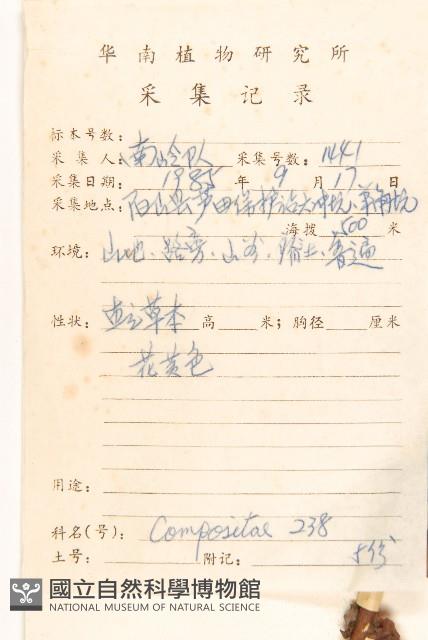 华南植物研究所
采集记录
标本号数：
采集人：南岭队 采集号数：1441
采集日期：1985 年 9 月 17 日
采集地点：阳山县 田保护站大 坑
海拨 500 米
环境：山地、路旁、山谷、 土、普遍
性状：直立草本 高 米；胸径 厘米
花黄色
用途：
科名(号)：Compositae 238
土号： 附记： 份
國立自然科學博物館
NATIONAL MUSEUM OF NATURAL SCIENCE